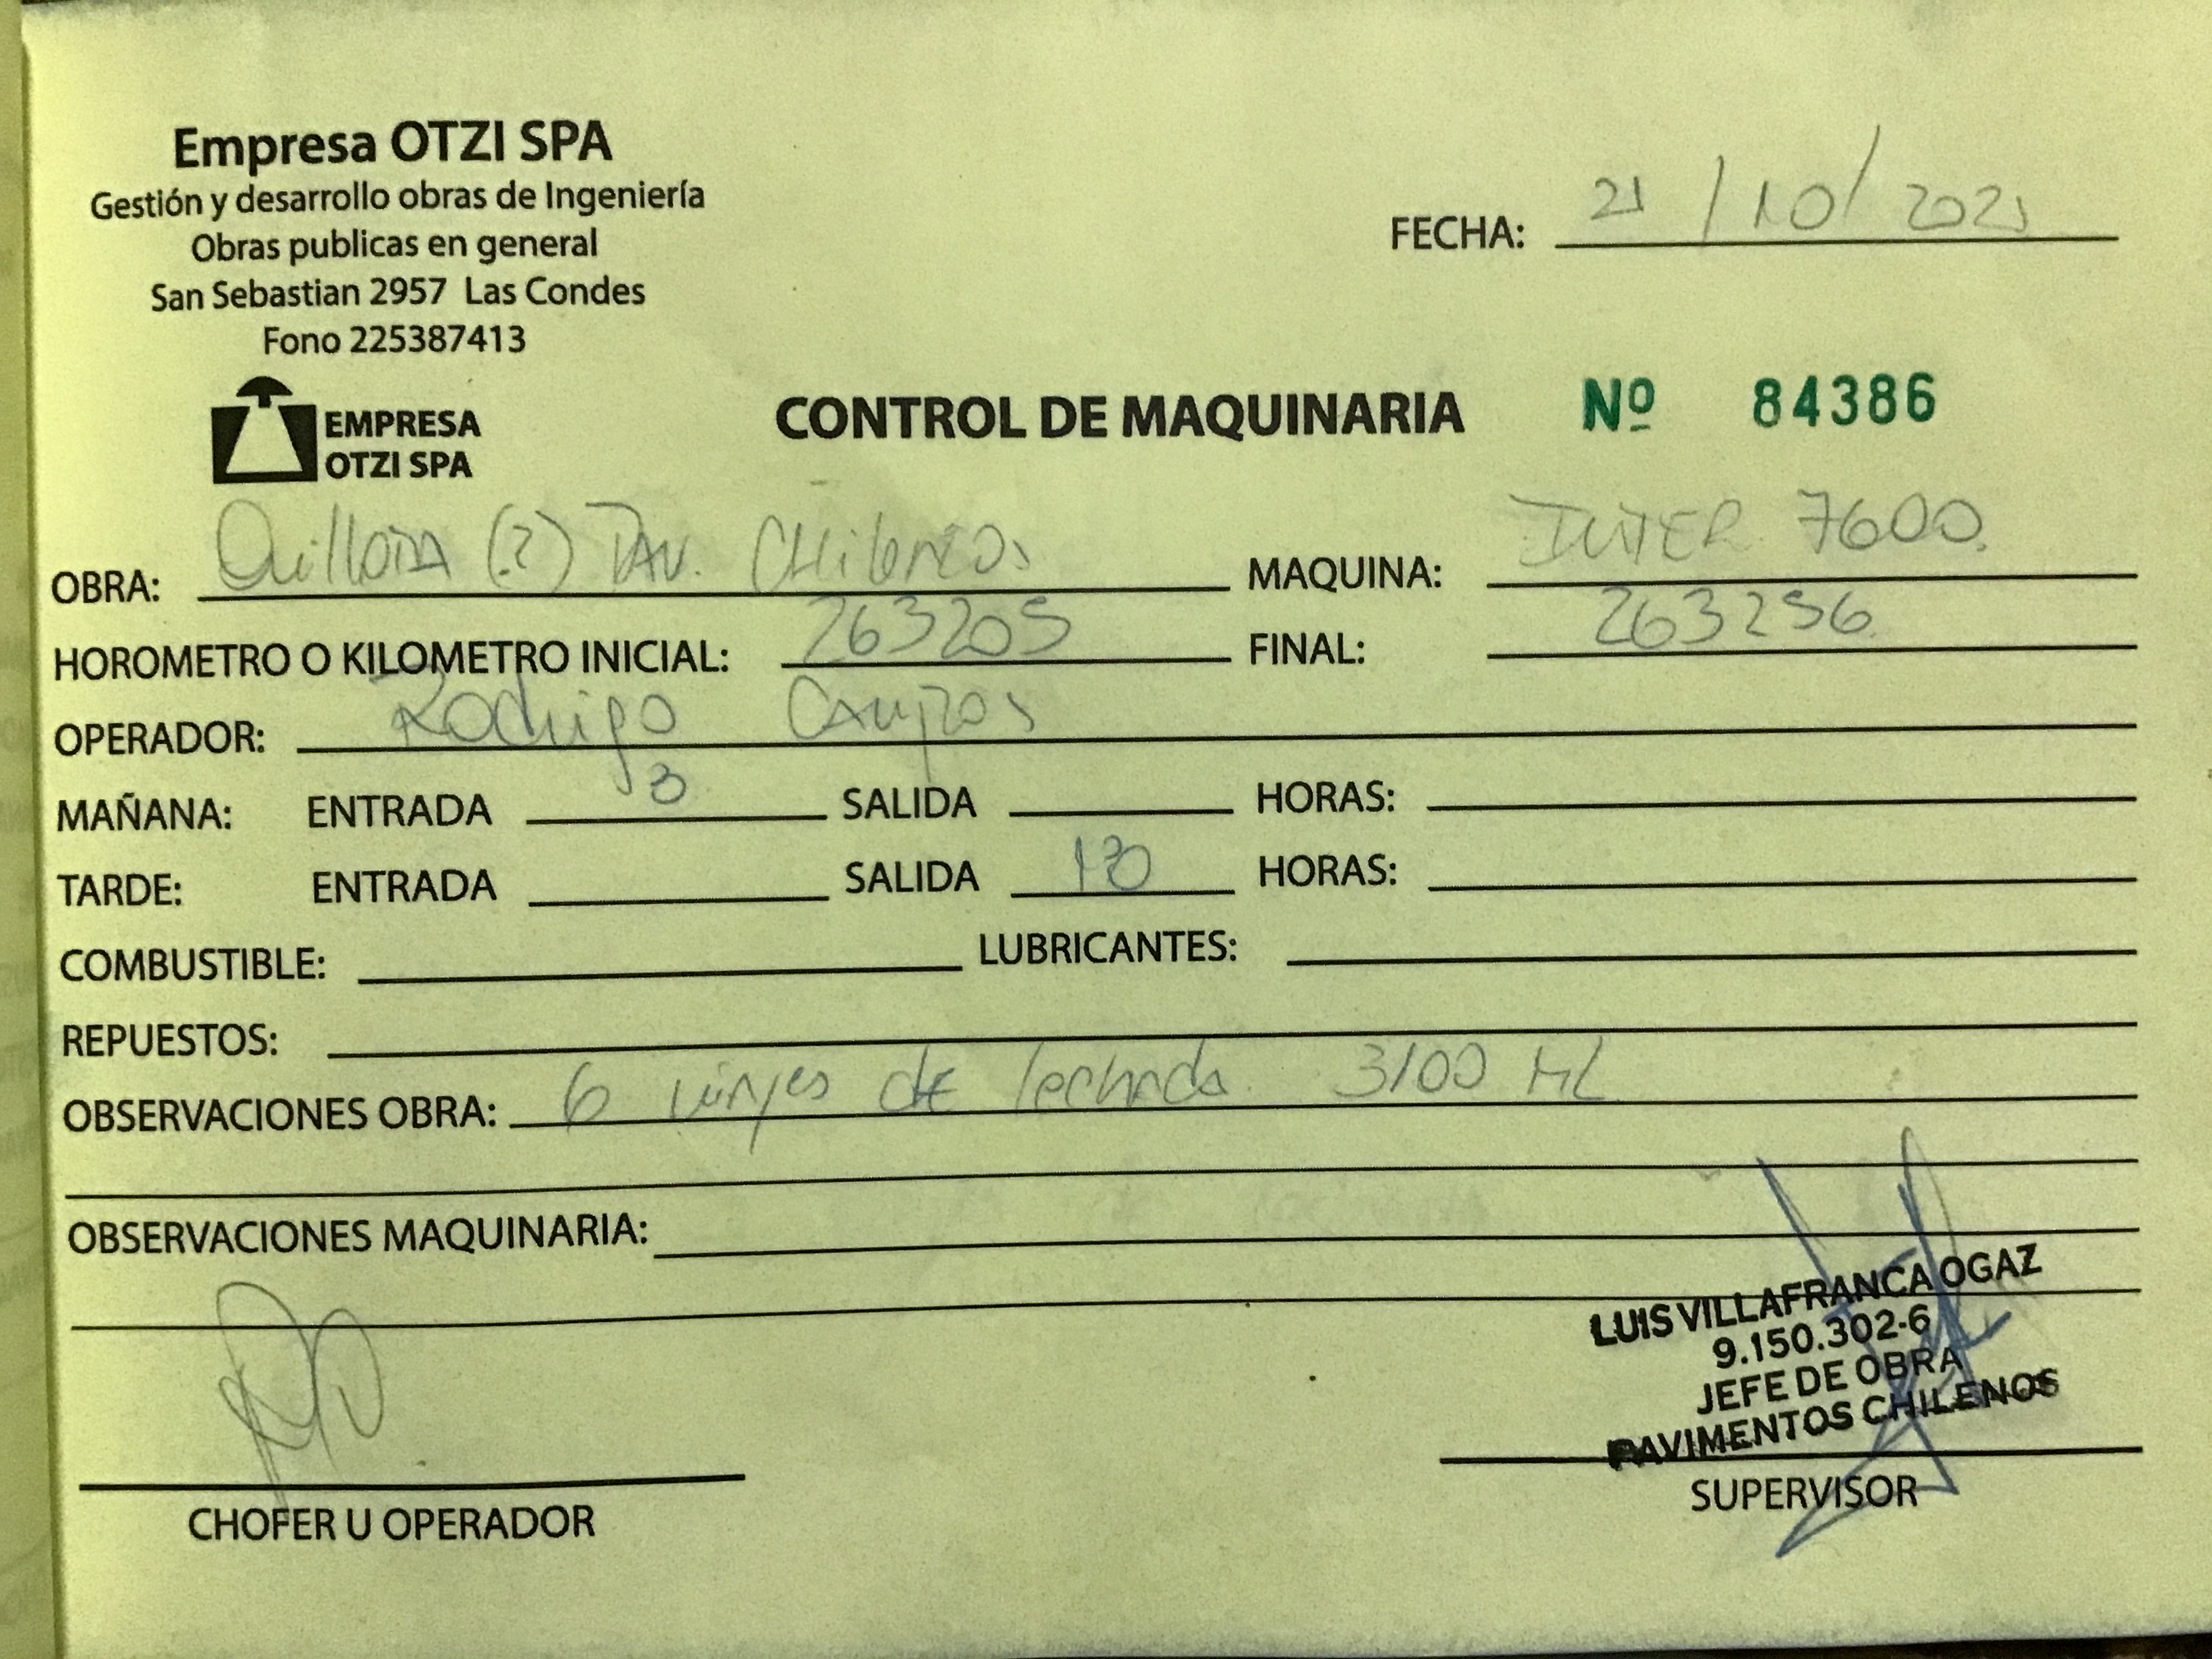 Empresa OTZI SPA
Gestión y desarrollo obras de Ingeniería
Obras publicas en general
San Sebastian 2957 Las Condes
Fono 225387413
FECHA: 21/10/2021
EMPRESA
OTZI SPA
CONTROL DE MAQUINARIA Nº 84386
OBRA: Quillota (2) PAV. CHilenos MAQUINA: INTER 7600.
HOROMETRO O KILOMETRO INICIAL: 263205 FINAL: 263256
OPERADOR: Rodrigo Campos
MAÑANA: ENTRADA SALIDA HORAS:
TARDE: ENTRADA SALIDA HORAS:
COMBUSTIBLE: LUBRICANTES:
REPUESTOS:
OBSERVACIONES OBRA: 6 viajes de lechada 3100 ML
OBSERVACIONES MAQUINARIA:
LUIS VILLAFRANCA OGAZ
9.150.302-6
JEFE DE OBRA
PAVIMENTOS CHILENOS
CHOFER U OPERADOR
SUPERVISOR